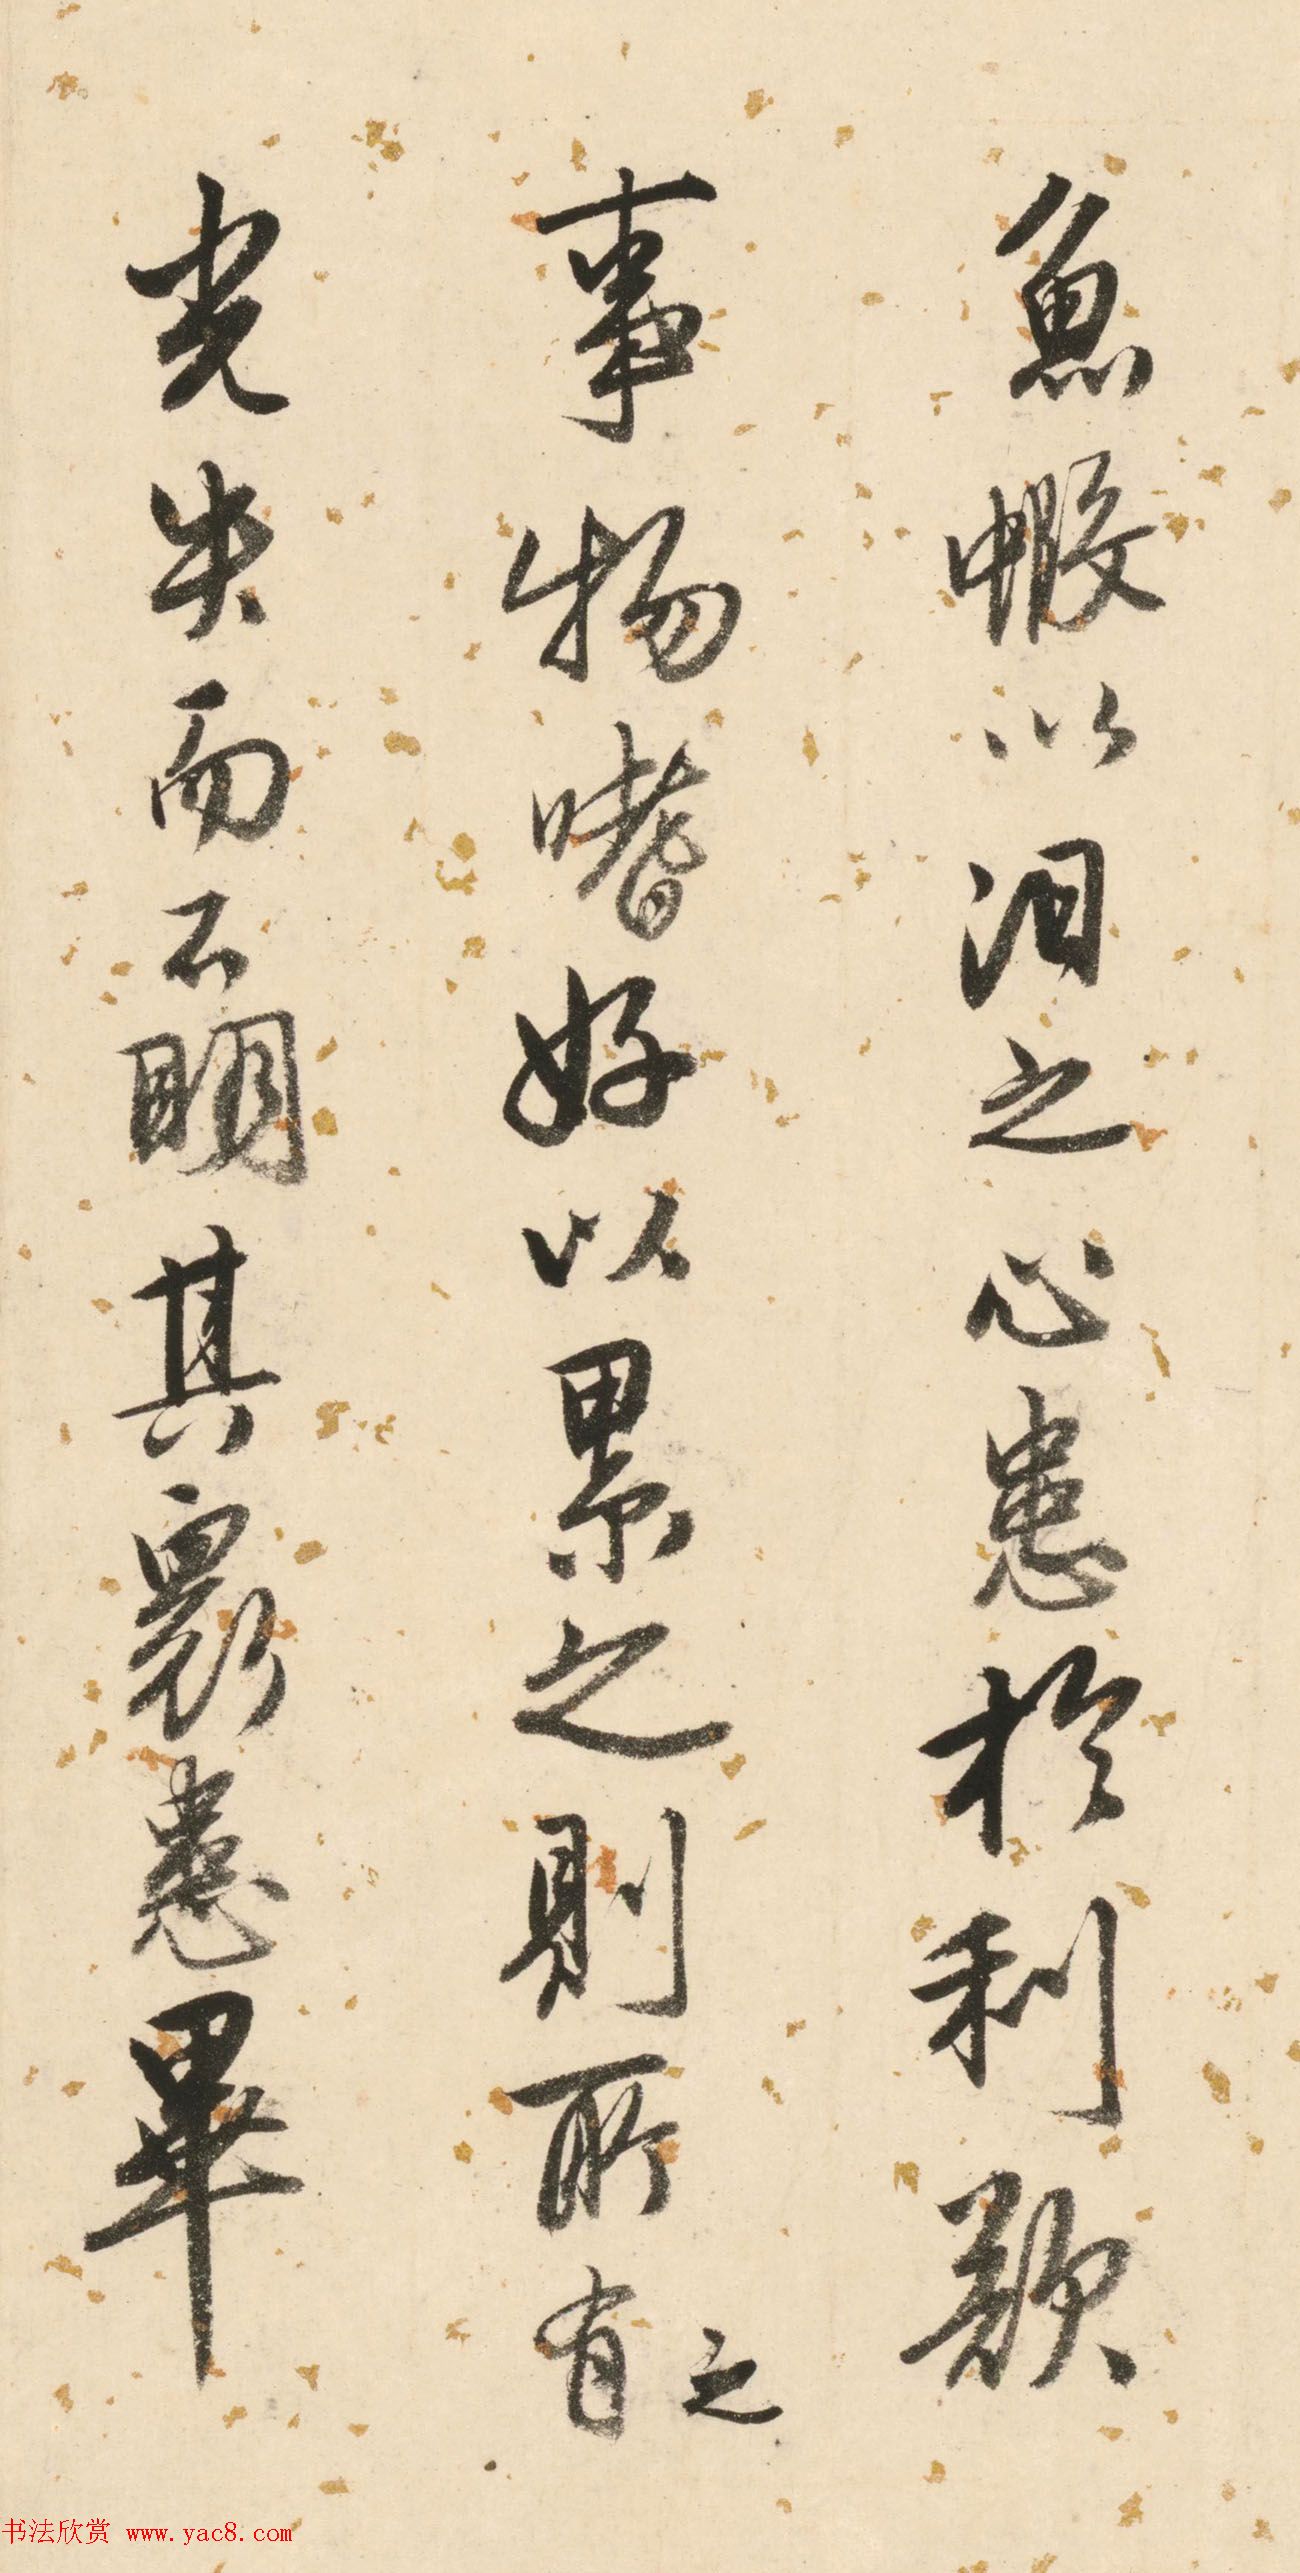 魚蝦以汩之心患於利欲
事物嗜好以累之則所有之
光失而不明其眾患畢
书法欣赏 www.yac8.com